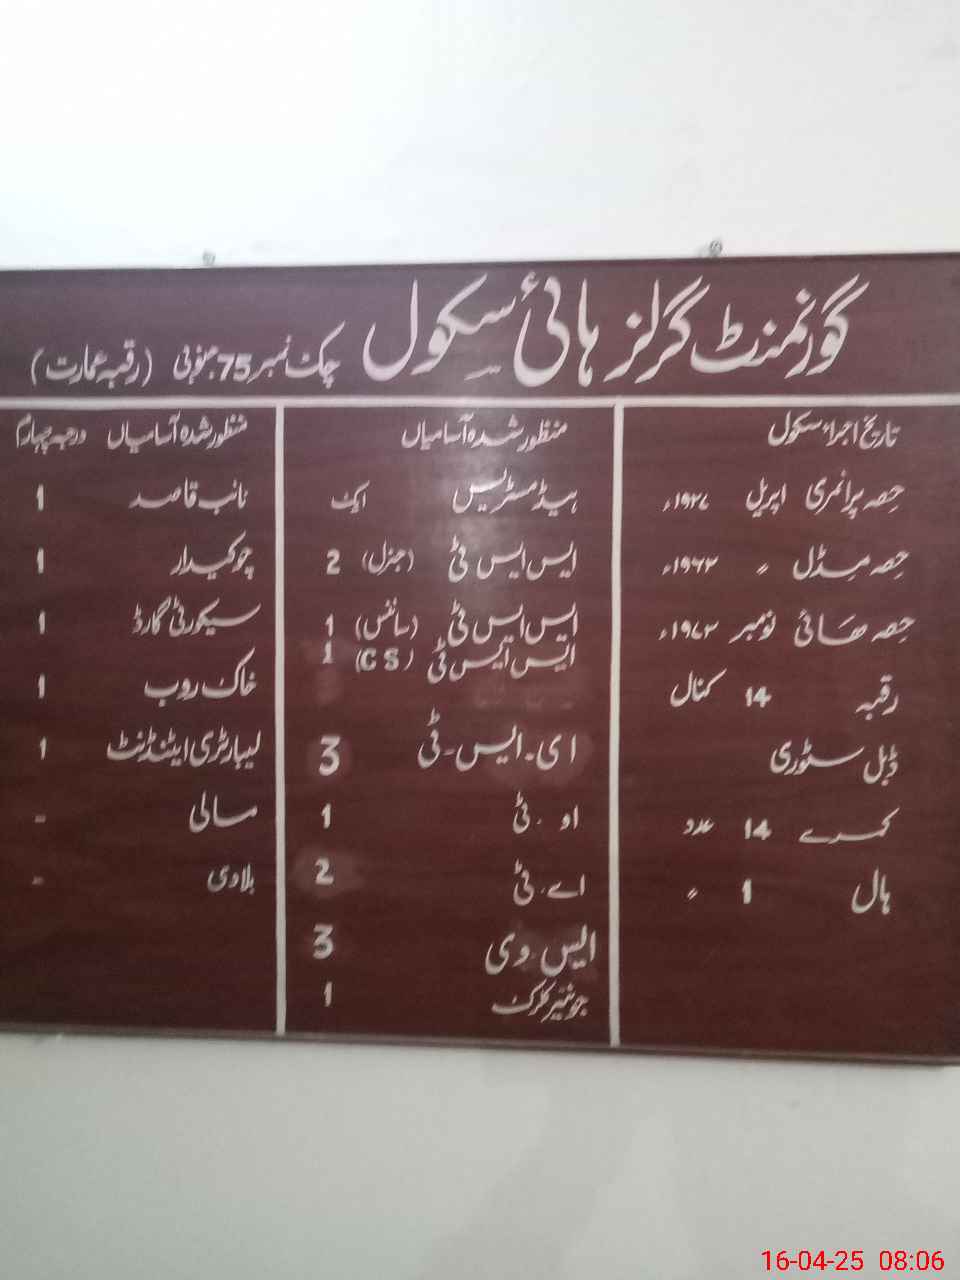 گورنمنٹ گرلز ہائی سکول چک نمبر 75 جنوبی (رقبہ عمارت)
تاریخ اجراء سکول
حصہ پرائمری اپریل ۱۹۲۷ء
حصہ مڈل 〃 ۱۹۶۲ء
حصہ ھائی نومبر ۱۹۷۲ء
رقبہ 14 کنال
ڈبل سٹوری
کمرے 14 عدد
ہال 1 〃
منظور شدہ آسامیاں
ہیڈ مسٹریس ایک
ایس ایس ٹی (جنرل) 2
ایس ایس ٹی (سائنس) 1
ایس ایس ٹی (CS) 1
ای۔ایس۔ٹی 3
او۔ٹی 1
اے۔ٹی 2
ایس۔وی 3
جونئیر کلرک 1
منظور شدہ آسامیاں درجہ چہارم
نائب قاصد 1
چوکیدار 1
سیکورٹی گارڈ 1
خاک روب 1
لیبارٹری اٹینڈنٹ 1
مالی -
بلاوی -
16-04-25 08:06